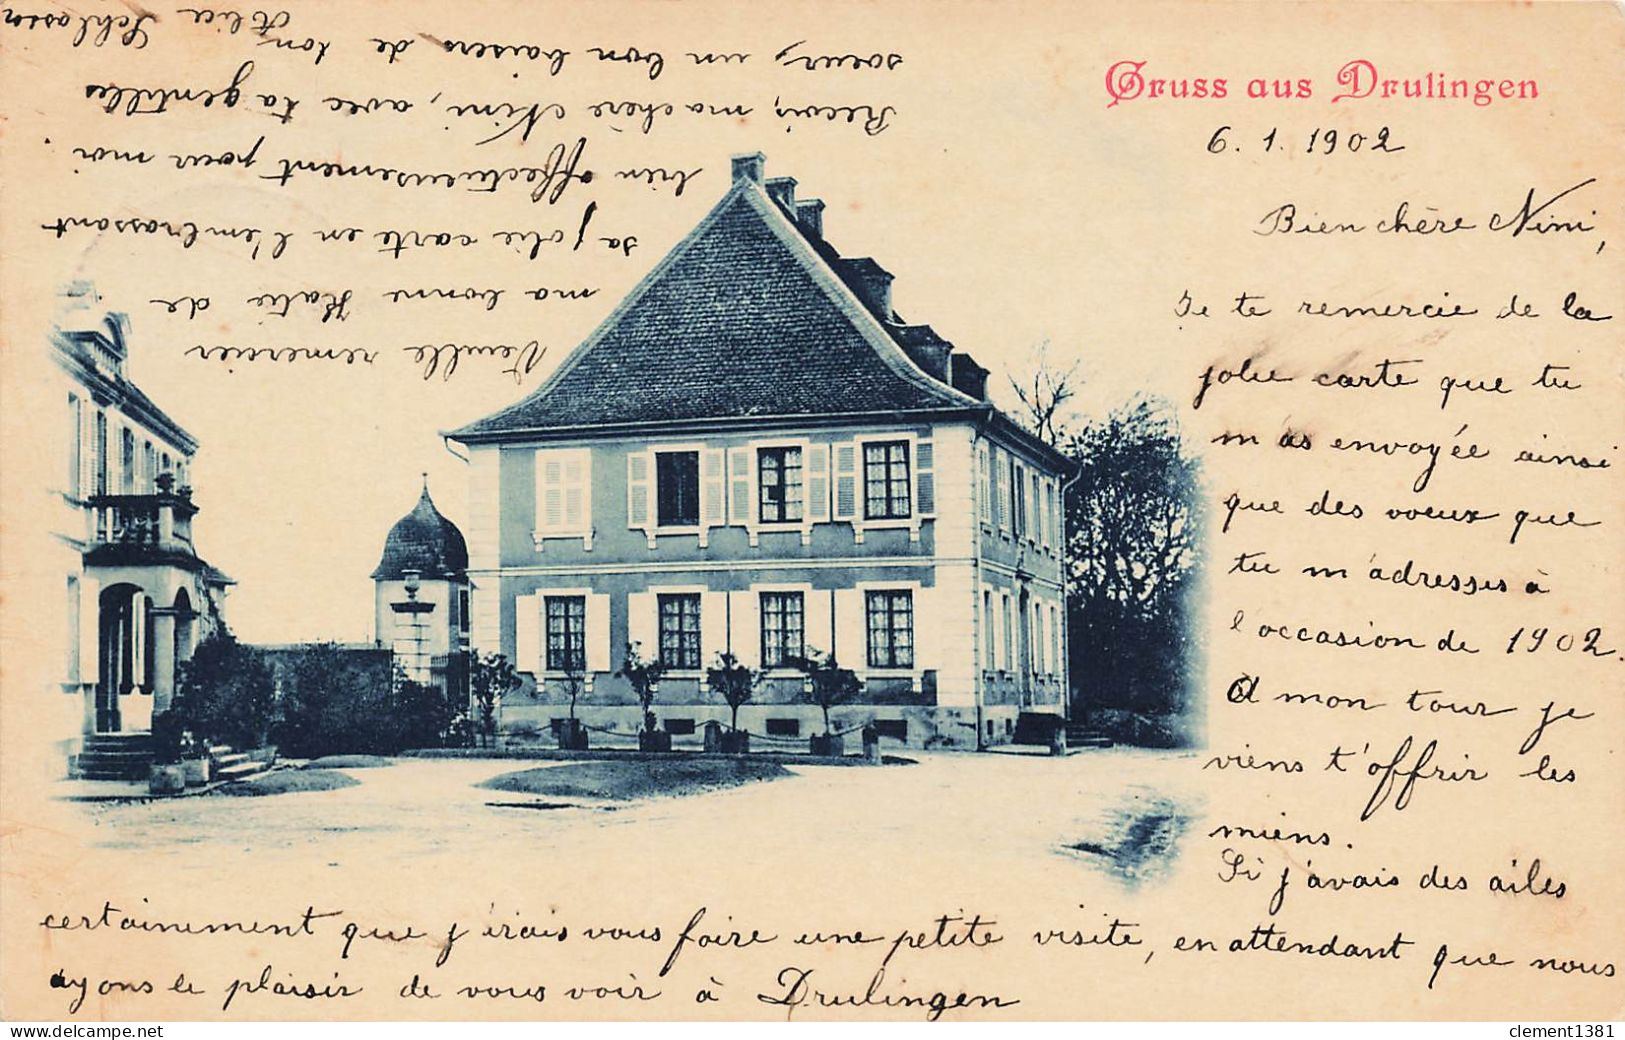 Gruss aus Drulingen
6. 1. 1902
Bien chère Nini,
Je te remercie de la
jolie carte que tu
m'as envoyée ainsi
que des voeux que
tu m'adresses à
l'occasion de 1902.
A mon tour je
viens t'offrir les
miens.
Si j'avais des ailes
certainement que j'irais vous faire une petite visite, en attendant que nous
ayons le plaisir de vous voir à Drulingen
Veuille remercier
ma bonne Katie de
sa jolie carte en l'embrassant
bien affectueusement pour moi.
Reçois, ma chère Nini, avec ta gentilles
soeur, un bon baisers de ton
Alice Schlosser
delcampe.net
clement1381